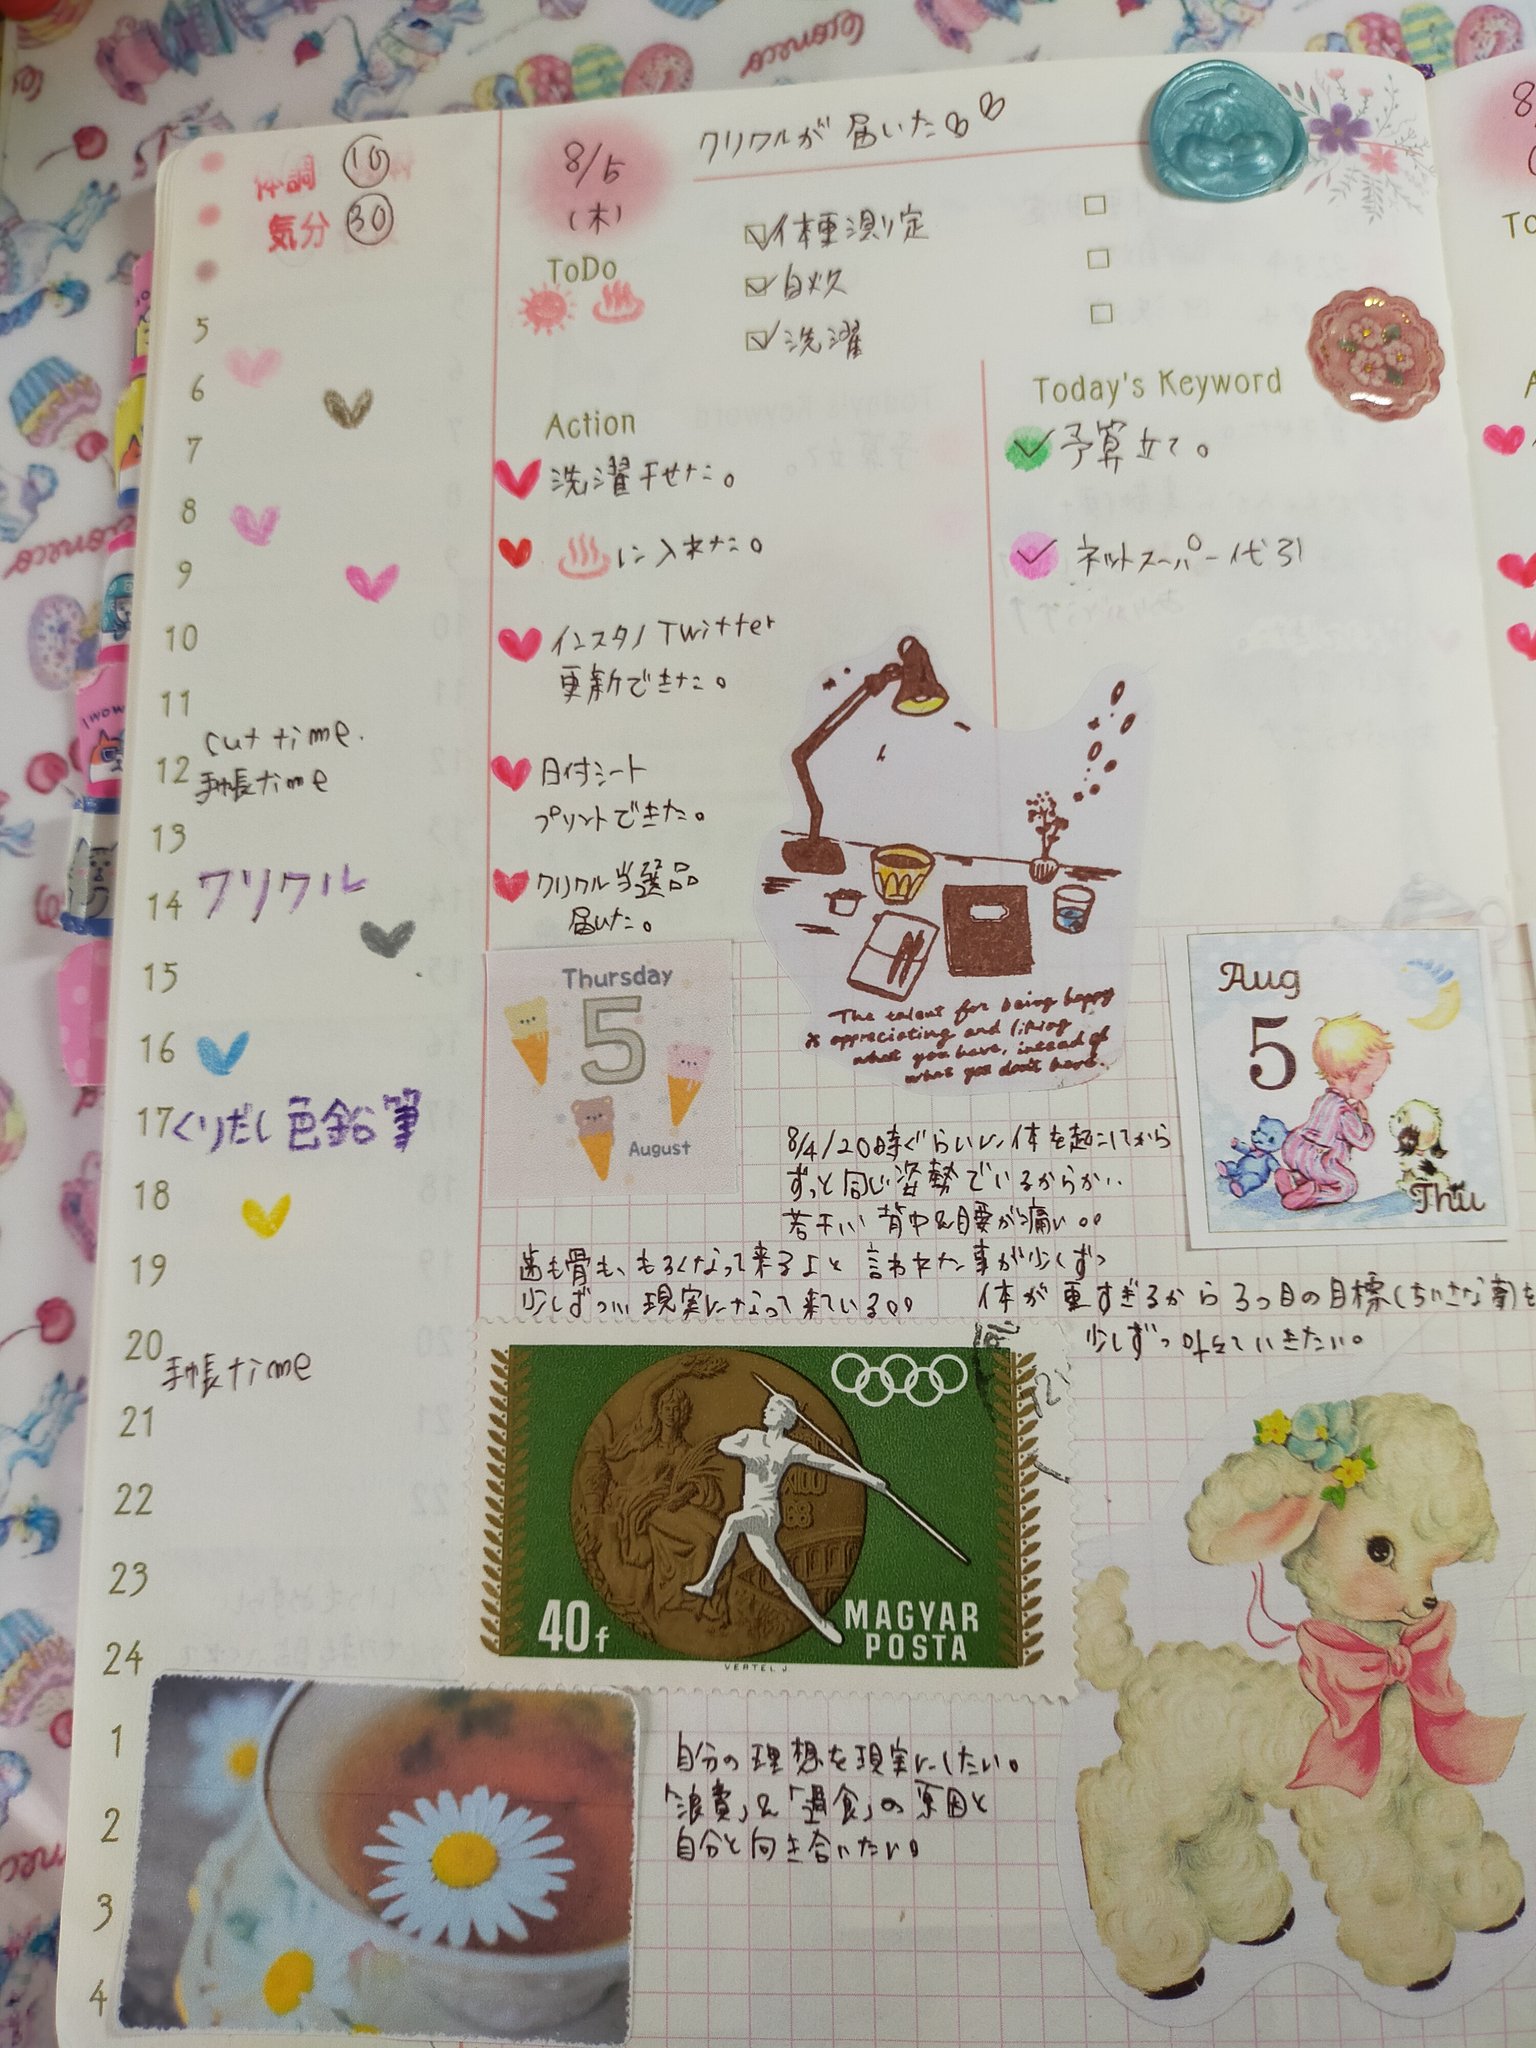 体調 10
気分 30
8/5
(木)
クリワルが届いた
ToDo
体重測定
自炊
洗濯
5
6
7
8
9
10
11
cut time.
12
手帳time
13
14
クリワル
15
16
17
くりだし色鉛筆
18
19
20
手帳time
21
22
23
24
1
2
3
4
Action
洗濯干せた。
♨に入れた。
インスタ/Twitter
更新できた。
日付シート
プリントできた。
クリワル当選品
届いた。
Today's Keyword
予算立て。
ネットスーパー代引
The talent for being happy
is appreciating and liking
what you have, instead of
what you don't have.
Thursday
5
August
Aug
5
Thu
8/4/20時ぐらいに体を起こしてから
ずっと同じ姿勢でいるからか、
若干、背中&腰が痛い。。
歯も骨も、もろくなって来るよと言われた事が少しずつ
少しずつ、、現実になって来ている。。
体が重すぎるから3つ目の目標(ちいさな事)を
少しずつ叶えていきたい。
40f
MAGYAR
POSTA
VERTEL J
自分の理想を現実にしたい。
「浪費」&「過食」の原因と
自分と向き合いたい。
To